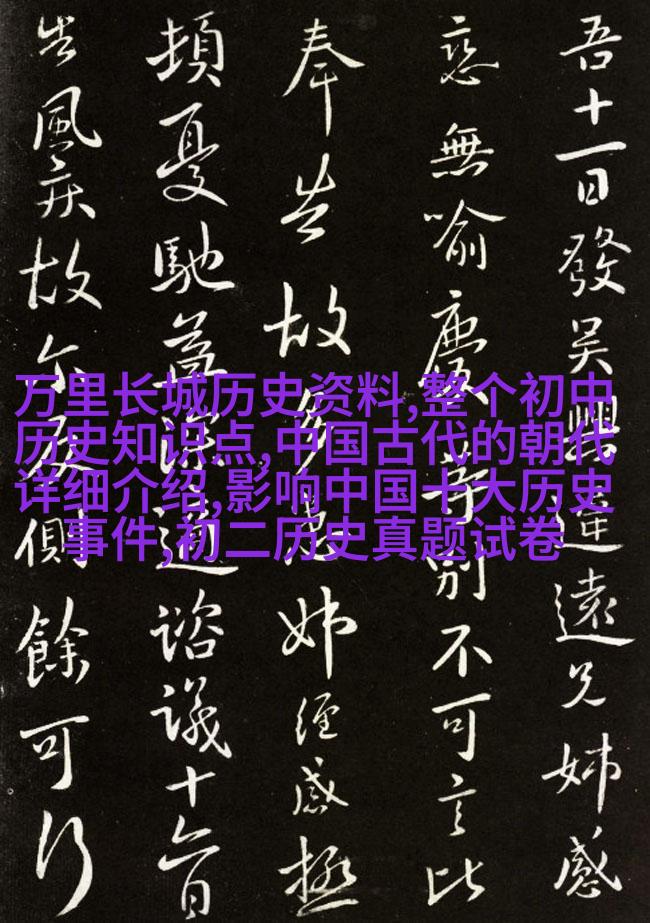 吾十一日發吴興違遠兄姊感
戀無喻慶等別不可言比
奉告故多患姊經感極
頓憂馳益深適諮議十六日
告風疾故尔反側餘可行
万里长城历史资料,整个初中
历史知识点,中国古代的朝代
详细介绍,影响中国十大历史
事件,初二历史真题试卷